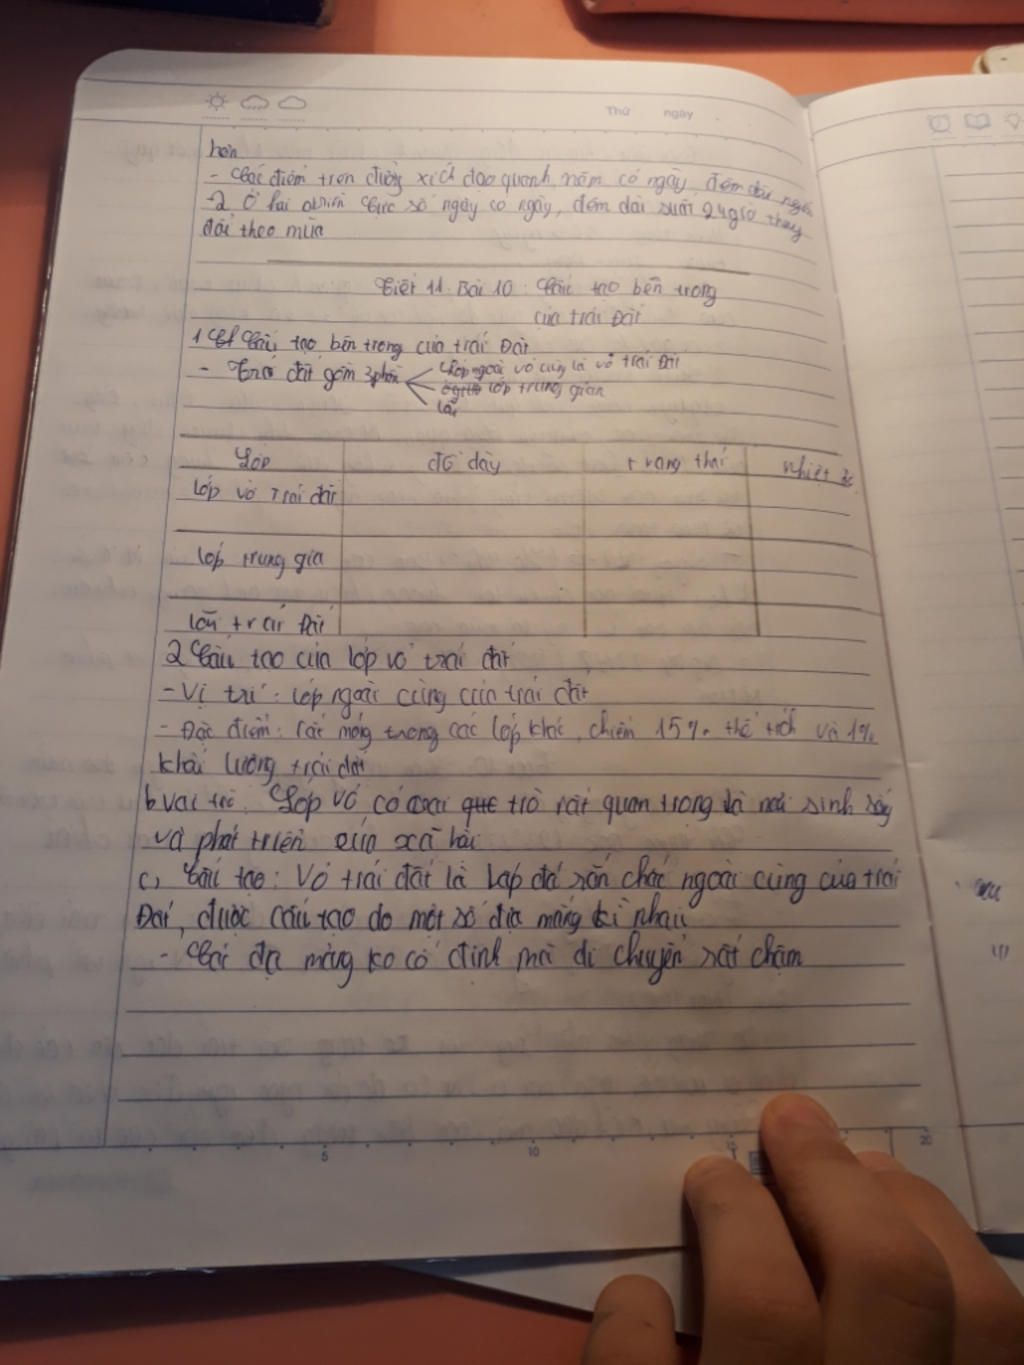 Thứ ngày
hơn
- Các điểm trên đường xích đạo quanh năm có ngày, đêm dài
-2 Ở hai có ngày, đêm dài suốt 24giờ thay
đổi theo mùa
Tiết 11. Bài 10: Cấu tạo bên trong
của trái Đất
1 Cấu tạo bên trong của trái Đất
- Trái đất gồm 3 phần
lớp ngoài vỏ cùng là vỏ trái Đất
lớp trung gian
lõi
Lớp độ dày trạng thái nhiệt độ
lớp vỏ Trái đất
lớp trung gia
lõi trái Đất
2 Cấu tạo của lớp vỏ trái đất
- Vị trí: lớp ngoài cùng của trái đất
- Đặc điểm: rất mỏng trong các lớp khác, chiếm 15% thể tích và 1%
khối lượng trái đất
b vai trò. Lớp vỏ có vai trò rất quan trọng là nơi sinh sống
và phát triển của xã hội
c, Cấu tạo: Vỏ trái đất là lớp đá rắn chắc ngoài cùng của trái
Đất, được cấu tạo do một số địa mảng kề nhau
- Các địa mảng ko cố định mà di chuyển rất chậm
5 10 15 20